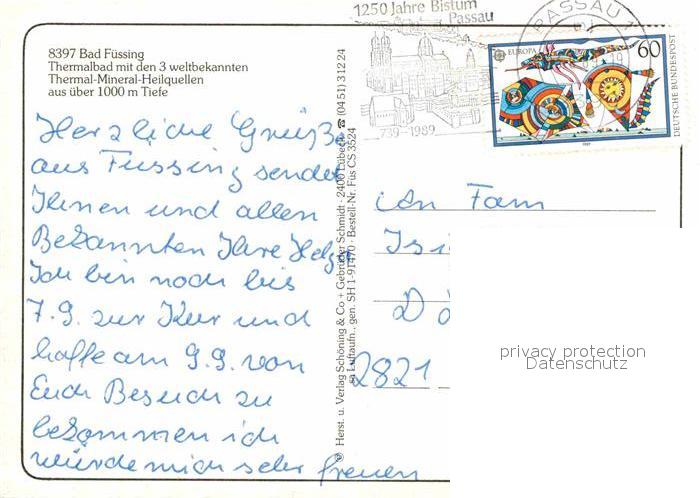 1250 Jahre Bistum
Passau
739 - 1989
PASSAU 1
EUROPA
60
DEUTSCHE BUNDESPOST
8397 Bad Füssing
Thermalbad mit den 3 weltbekannten
Thermal-Mineral-Heilquellen
aus über 1000 m Tiefe
Herzliche Grüße
aus Füssing sendet
Ihnen und allen
Bekannten Ihre
Ich bin noch bis
7.9. zur Kur und
hoffe am 9.9. von
Euch Besuch zu
bekommen ich
würde mich sehr freuen
© Herst. u. Verlag Schöning & Co + Gebrüder Schmidt · 2400 Lübeck ☎ (04 51) 3 12 24
Luftaufn., gen. SH 1-91470 · Bestell-Nr. Füs CS 3524
An Fam
2821
privacy protection
Datenschutz